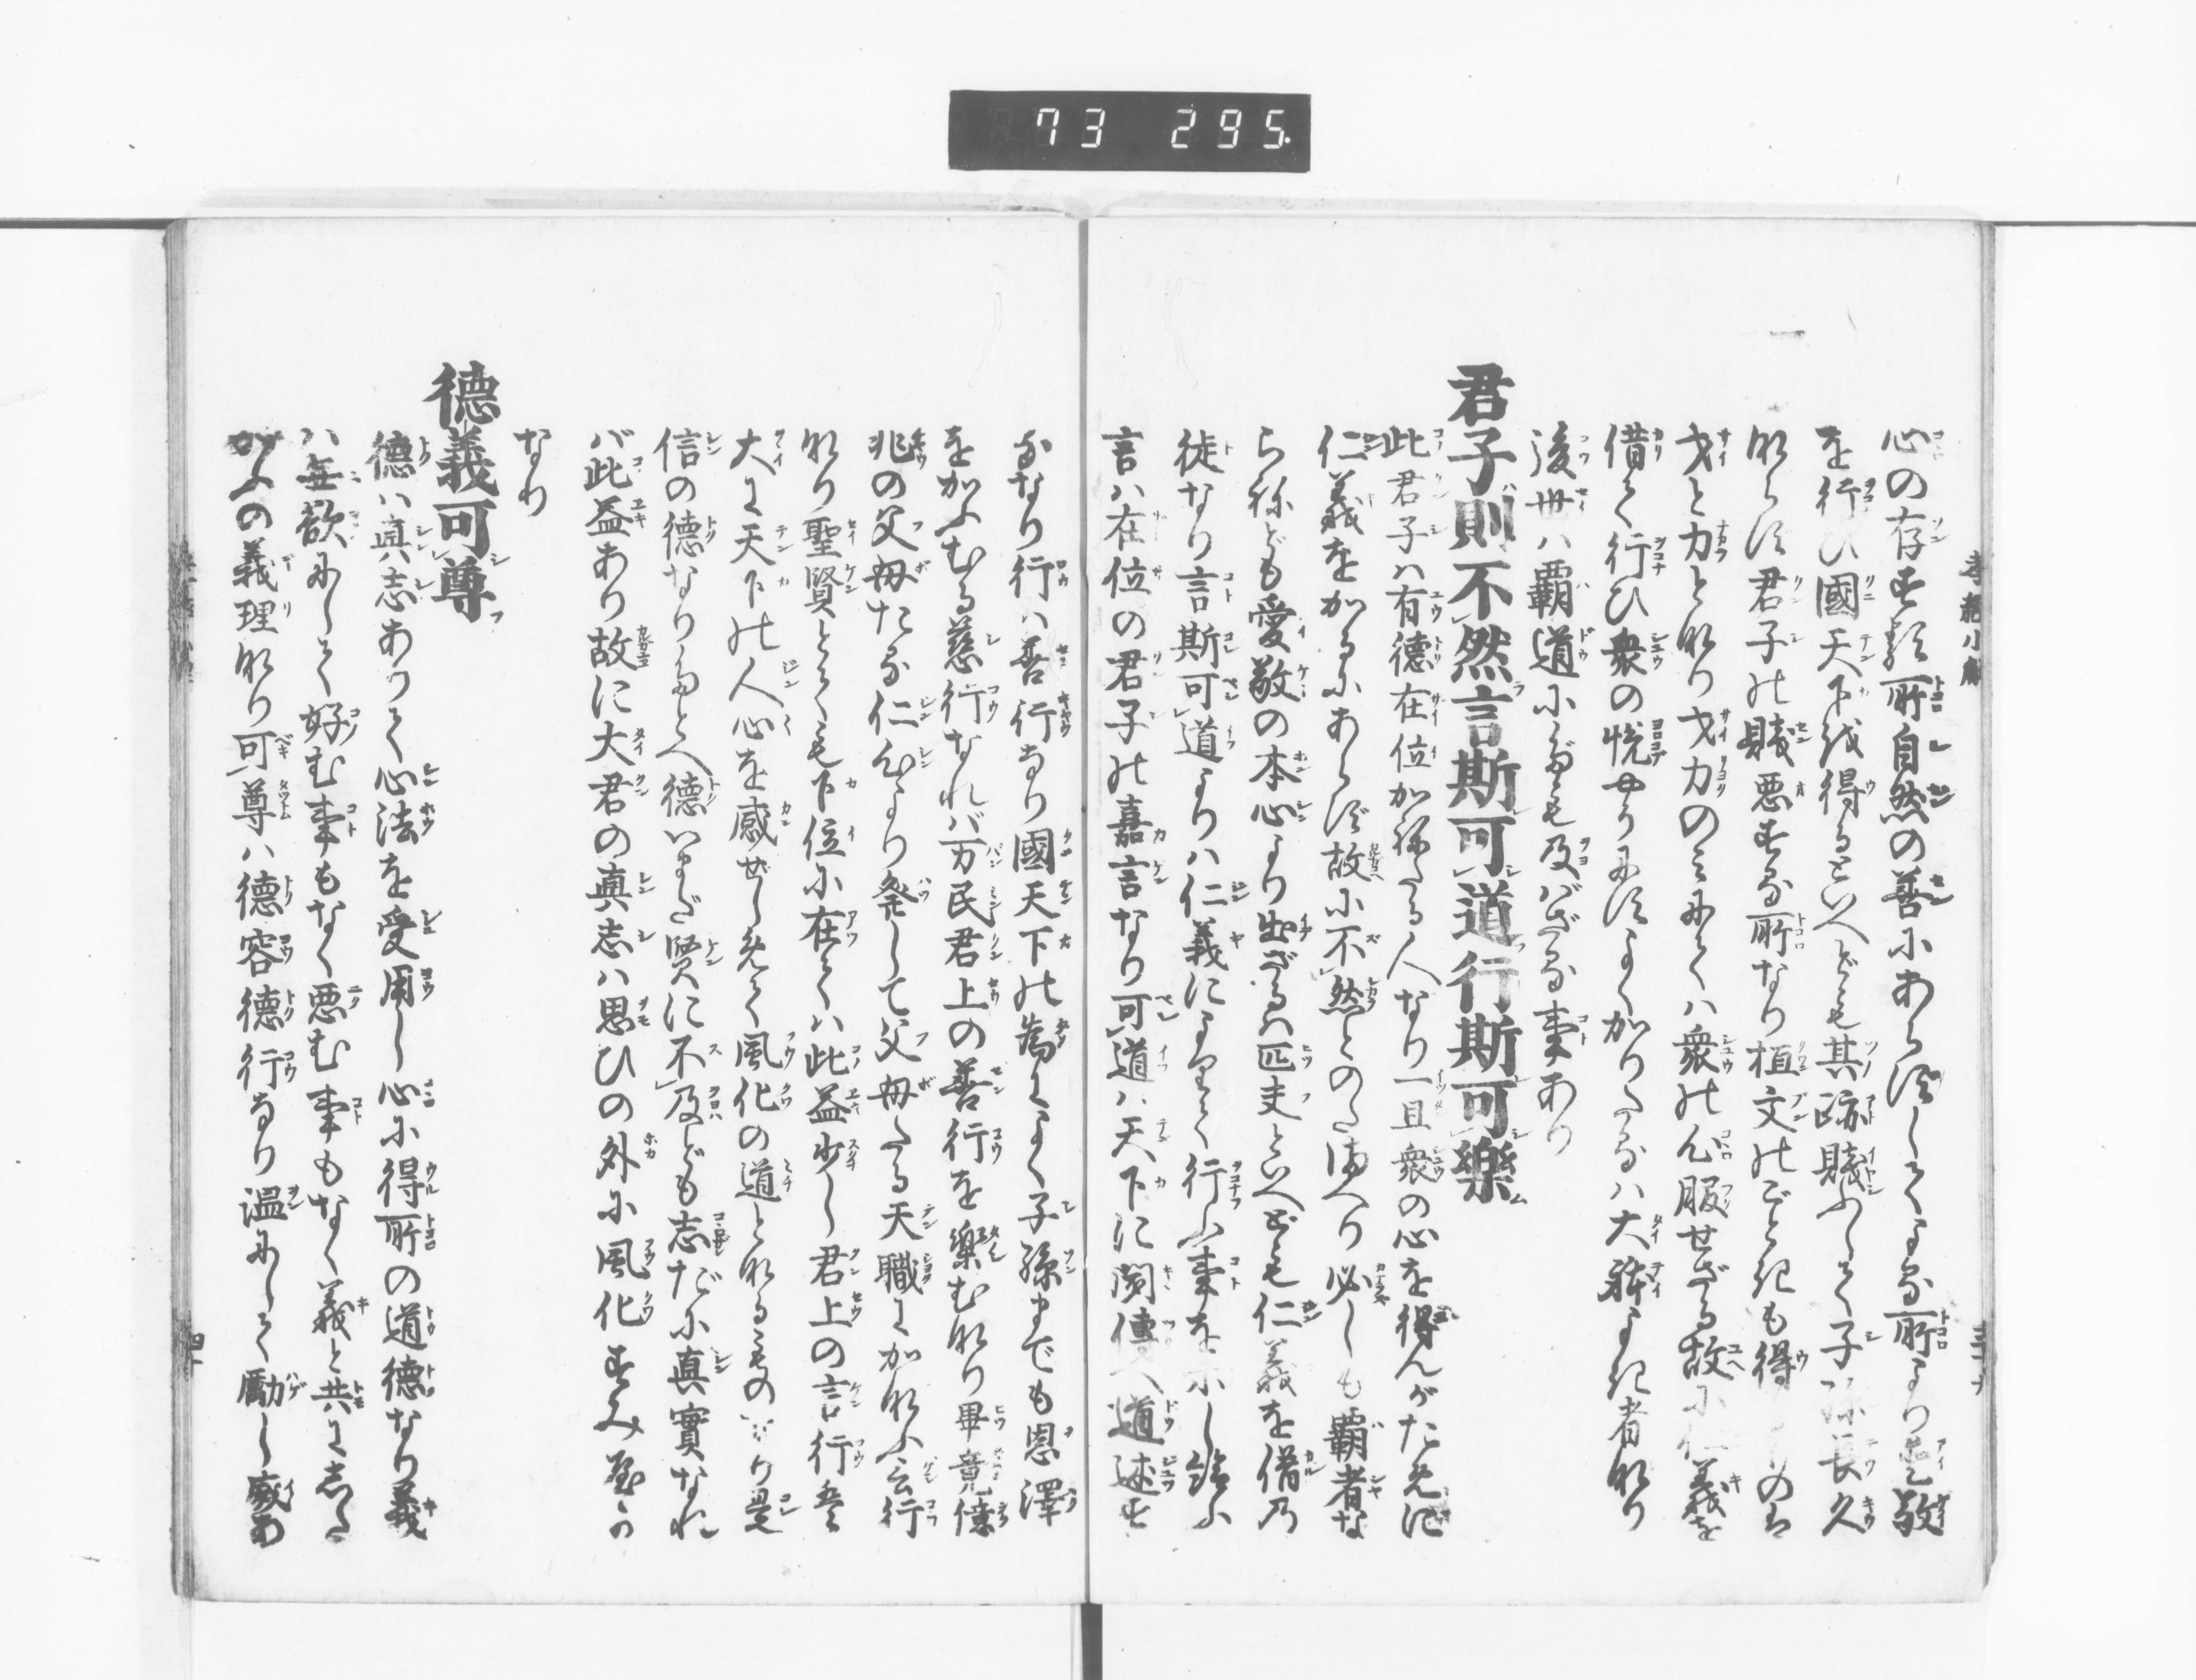 73 295.
心の存する所自然の善にあらずしてよる所より愛敬
を行ひ國天下を得るといへども其跡賤ふして子孫長久
ならず君子の賤悪する所なり桓文のごときも得
才と力となり才力のみにしては衆の心服せざる故に仁義を
借て行ひ衆の悦やうにすよくかりたるは大躰よき者なり
後世ハ覇道にだも及バざる事あり
君子則不然言斯可道行斯可樂
此君子ハ有德在位かねたる人なり一旦衆の心を得んがために
仁義をかるにあらず故に不然とのたまへり必しも覇者な
らねども愛敬の本心より出ざるハ匹夫といへども仁義を借乃
徒なり言斯可道よりハ仁義によりて行ふ事を示し給ふ
言ハ在位の君子の嘉言なり可道ハ天下に聞傳へ道述す
るなり行ハ善行なり國天下の為によく子孫までも恩澤
をかふむる慈行なれバ万民君上の善行を樂むなり畢竟億
兆の父母たる仁心より発して父母たる天職にかなふ言行
なり聖賢とても下位に在てハ此益少し君上の言行至
大に天下の人心を感ぜしめて風化の道となるものなり是
信の德なりたとへ德いまだ賢に不及ども志だに真實なれ
バ此益あり故に大君の真志ハ思ひの外に風化すみやか
なり
德義可尊
德ハ真志ありて心法を受用し心に得所の道德なり義
ハ無欲にして好む事もなく悪む事もなく義と共にした
がふの義理なり可尊ハ德容德行なり温にして勵し威あ